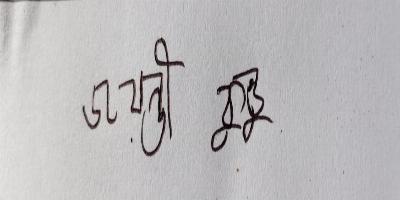 জয়ন্তী কুন্ডু